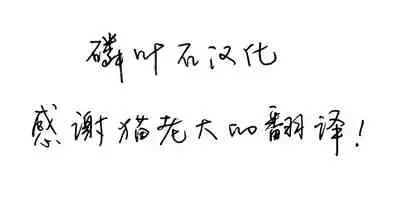 磷叶石汉化
感谢猫老大的翻译!